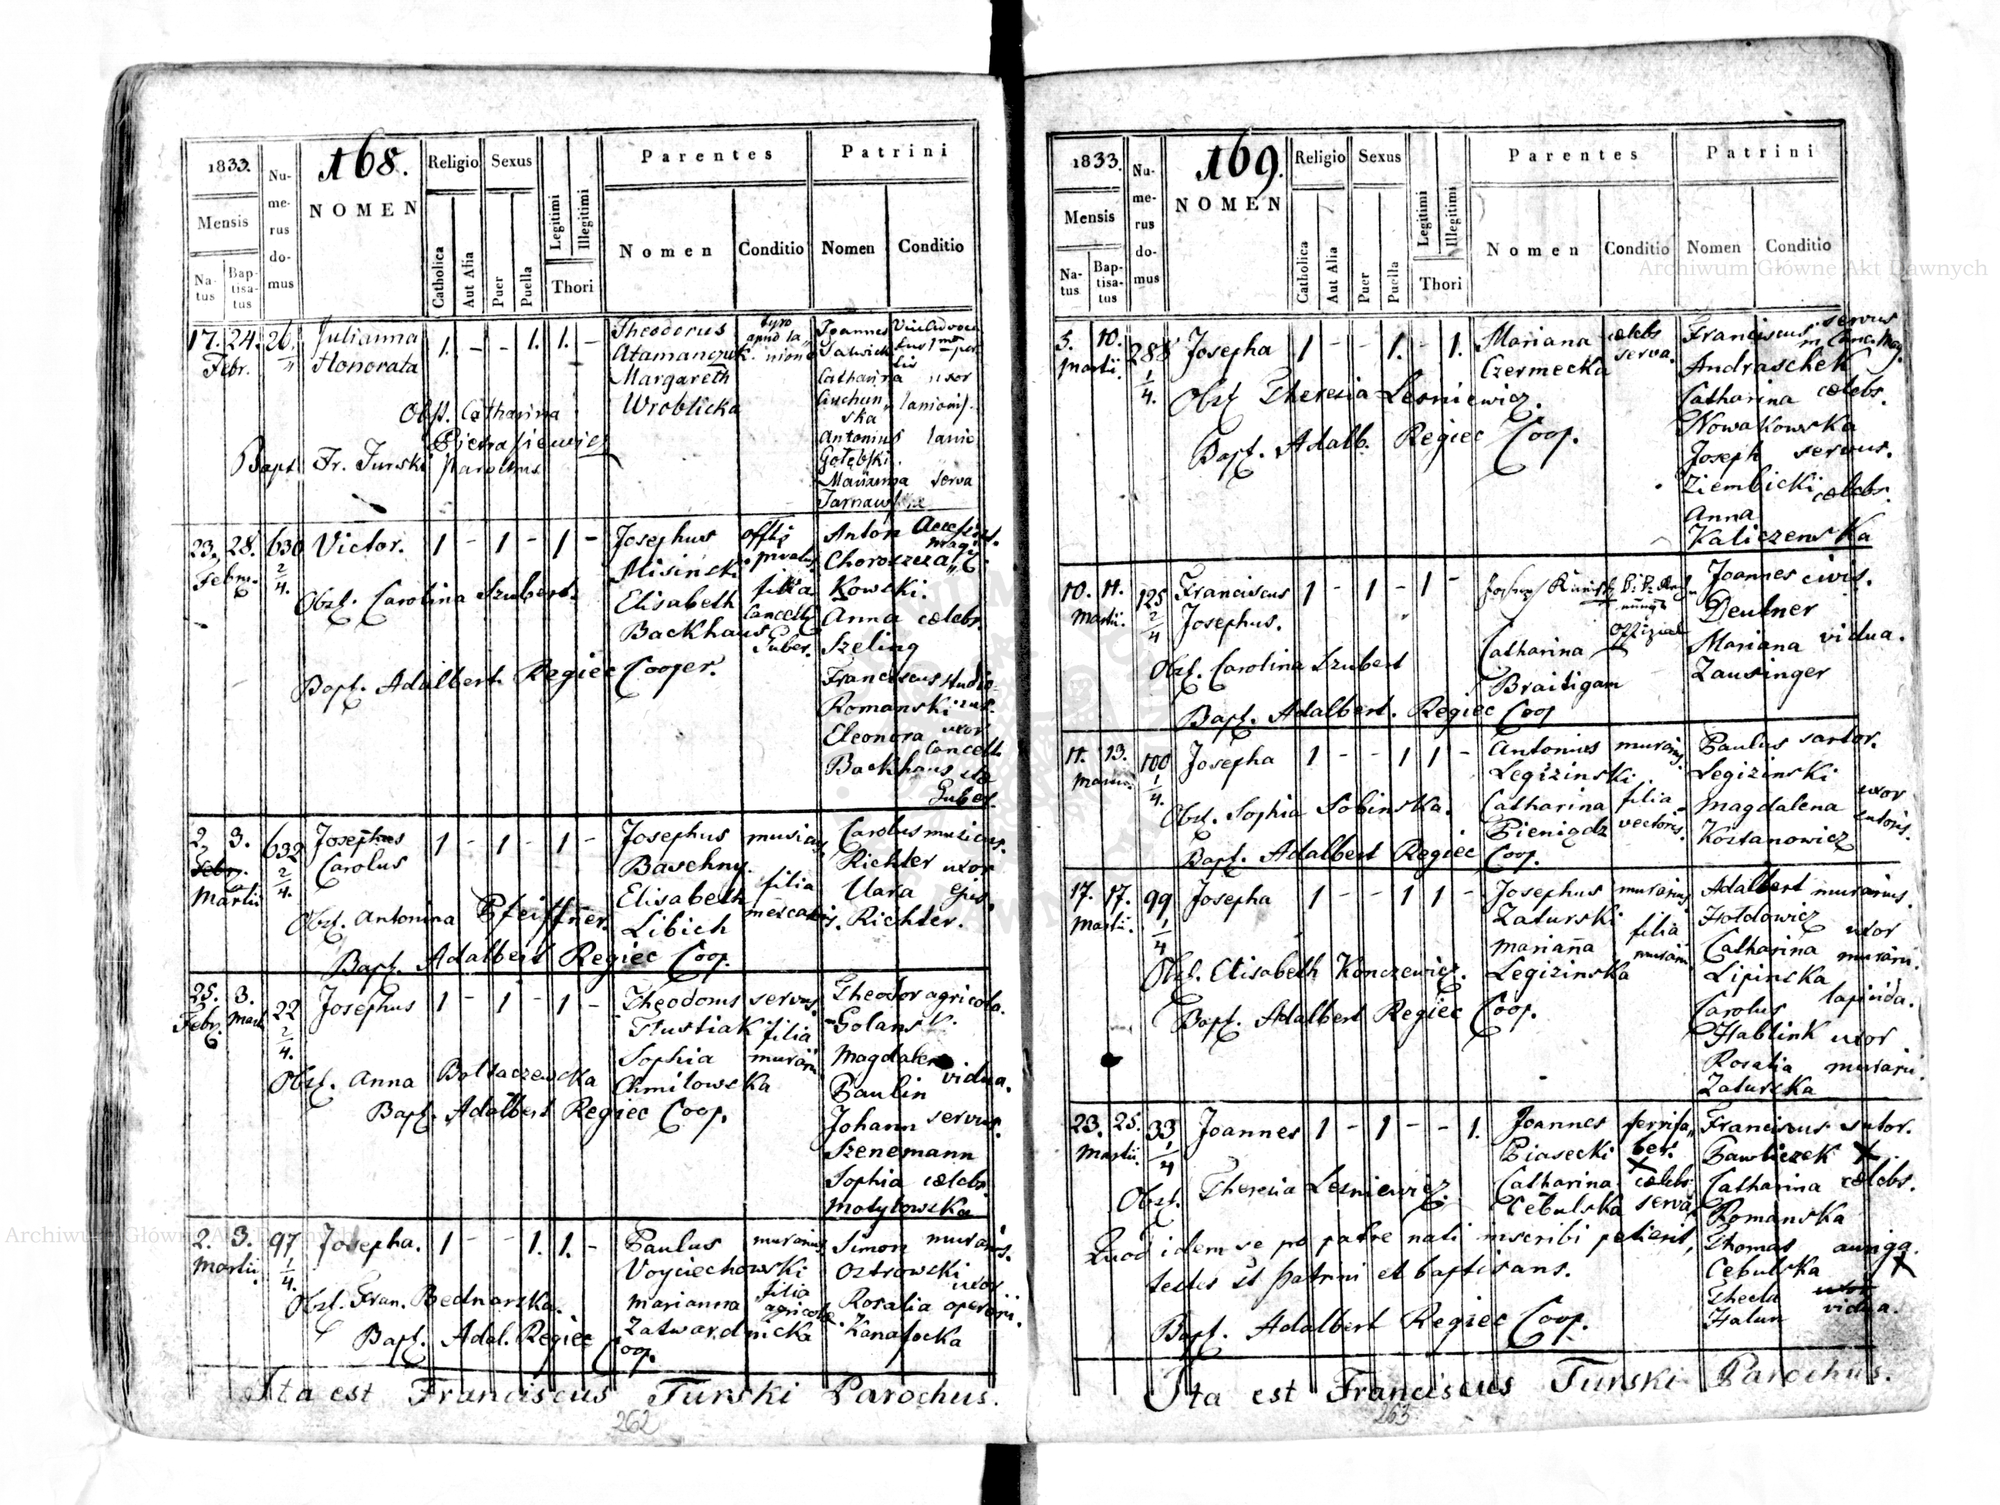 168.
1833.
Mensis
Na-
tus
Bap-
tisa-
tus
Nu-
me-
rus
do-
mus
NOMEN
Religio
Catholica
Aut Alia
Sexus
Puer
Puella
Legitimi
Illegitimi
Thori
Parentes
Nomen
Conditio
Patrini
Nomen
Conditio
17. 24. 26 Julianna 1. - - 1. 1. - Theodorus tyro Joannes
Febr. Honorata Atamanczuk
Margareth Catharina uxor
Obst. Catharina Wroblicka lanionis.
Pietrasiewicz Antonius lanio
Bapt. Fr. Turski parochus Gołębski.
Marianna serva
23. 28. 630 Victor. 1 - 1 - 1 - Josephus Anton
Febr. 2/4. Misinski privatus Choroszcza„
Obst. Carolina Szubert. filia Kowski.
Elisabeth Cancell. Anna cælebs.
Backhaus Guber. Szeling
Bapt. Adalbert Regiec Cooper. Franciscus studio-
Romanski sus.
Eleonora uxor
Backhaus Cancell
Guber.
2. 3. 632 Josephus 1 - 1 - 1 - Josephus musicus Carolus musicus.
Febr. 2/4. Carolus Baschny. Richter uxor
Martii Elisabeth filia Clara ejus.
Obst. Antonina Pfeiffner. Libich mercatoris. Richter.
Bapt. Adalbert Regiec Coop.
25. 3. 22 Josephus 1 - 1 - 1 - Theodorus servus. Theodor agricola.
Febr. Mart. 2/4. Tłustiak filia Golansk.
Sophia murarii Magdalena vidua.
Obst. Anna Boltaczewska Chmilowska Paulin
Bapt. Adalbert Regiec Coop. Johann servus.
Szenemann
Sophia cælebs
Motylowska
2. 3. 97 Josepha. 1 - - 1. 1. - Paulus murarius Simon murarius.
Martii. 1/4. Voyciechowski Ostrowski uxor
Obst. Fran. Bednarska. Marianna filia agricolæ Rosalia operarii.
Bapt. Adal. Regiec Coop. Zatwardnicka Kanafocka
Ita est Franciscus Turski Parochus.
262
169.
1833.
Mensis
Na-
tus
Bap-
tisa-
tus
Nu-
me-
rus
do-
mus
NOMEN
Religio
Catholica
Aut Alia
Sexus
Puer
Puella
Legitimi
Illegitimi
Thori
Parentes
Nomen
Conditio
Patrini
Nomen
Conditio
5. 10. 288 Josepha 1 - - 1. - 1. Mariana cælebs Franciscus servus
Martii. 1/4. Czermecka serva. Andraschek
Obst Theresia Lesniewicz. Catharina cælebs.
Bapt. Adalb. Regiec Coop. Nowakowska
Joseph servus.
Ziembicki cælebs.
Anna
Kaliczewska
10. 11. 125 Franciscus 1 - 1 - 1 - Joannes civis.
Martii. 2/4 Josephus. Deutner
Catharina Offizial Mariana vidua.
Obst. Carolina Szubert Braitigam Zausinger
Bapt. Adalbert. Regiec Coop
11. 13. 100 Josepha 1 - - 1 1 - Antonius murarius. Paulus sartor.
Martii. 1/4. Legizinski. Legizinski
Obst. Sophia Sobinska. Catharina filia Magdalena uxor
Bapt. Adalbert Regiec Coop. Pieniądz vectoris. Kostanowicz sutoris.
17. 17. 99 Josepha 1 - - 1 1 - Josephus murarius Adalbert murarius.
Martii. 1/4 Zaturski filia Hołdowicz uxor
Mariana murarii Catharina murarii.
Obst. Elisabeth Konczewicz. Legizinska Lipinska
Bapt. Adalbert Regiec Coop. Carolus lapicida.
Hablink uxor
Rosalia murarii.
Zaturska
23. 25. 33 Joannes 1 - 1 - - 1. Joannes ferrifa„ Franciscus sutor.
Martii. 1/4 Piasecki ber. Pawliczek X.
Obst. Theresia Lesniewicz. Catharina cælebs Catharina cælebs.
Cebulska serva Romanska
Quod idem se pro patre nati inscribi petierit, Thomas auriga.
testes st patrini et baptisans. Cebulska X
Thecla uxor
Bapt. Adalbert Regiec Coop. Halun vidua.
Ita est Franciscus Turski Parochus.
263
Archiwum Główne Akt Dawnych
Archiwum Główne Akt Dawnych